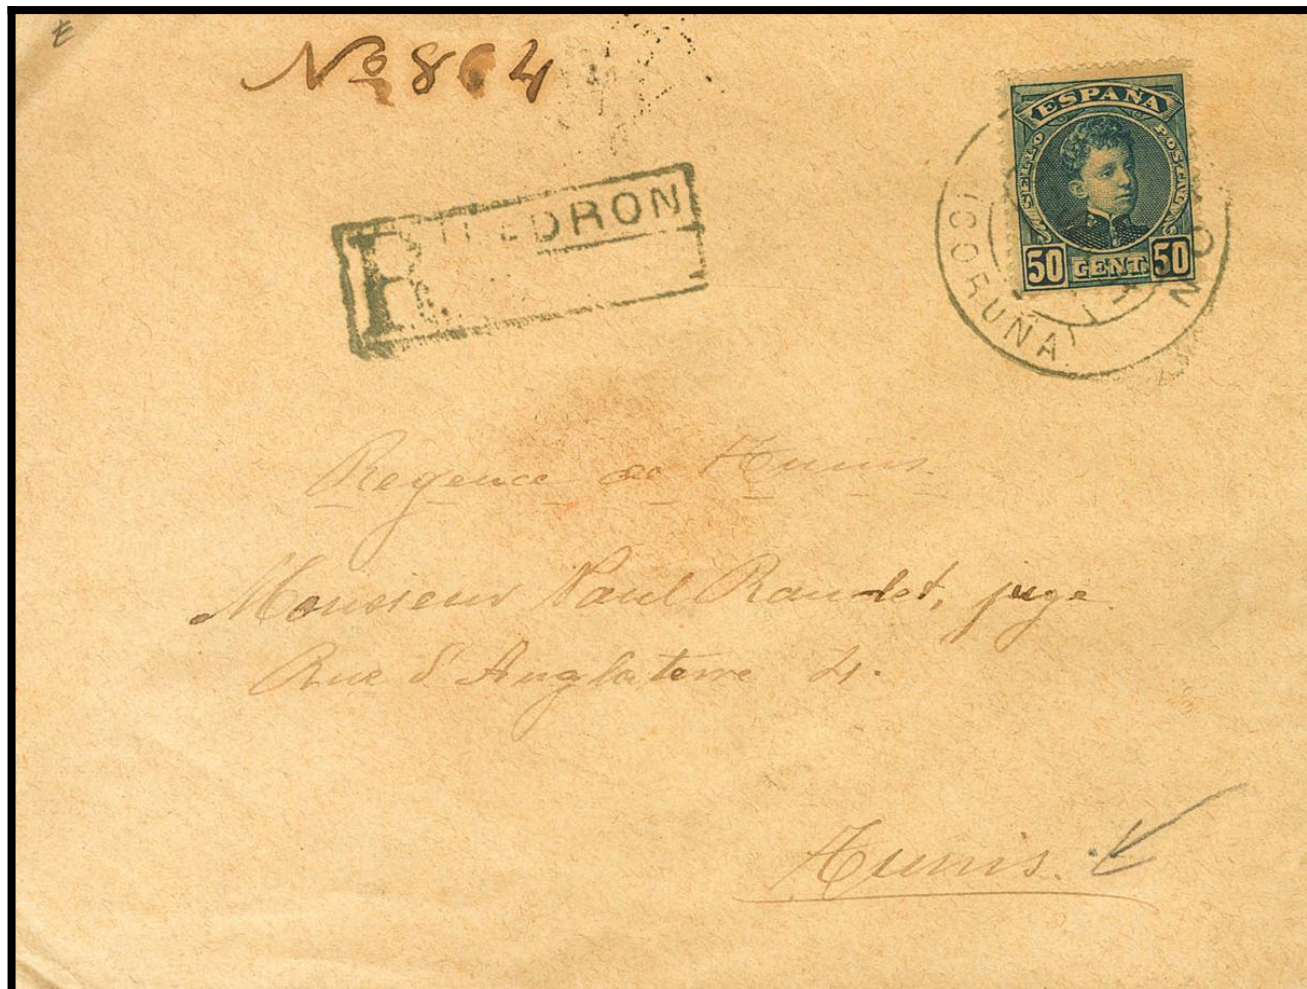 No 864
ESPAÑA
SELLO POSTAL
50 CENT. 50
(CORUÑA)
R
Regence de Tunis
Monsieur Paul Raudot, juge
Rue d'Angleterre 4.
Tunis.